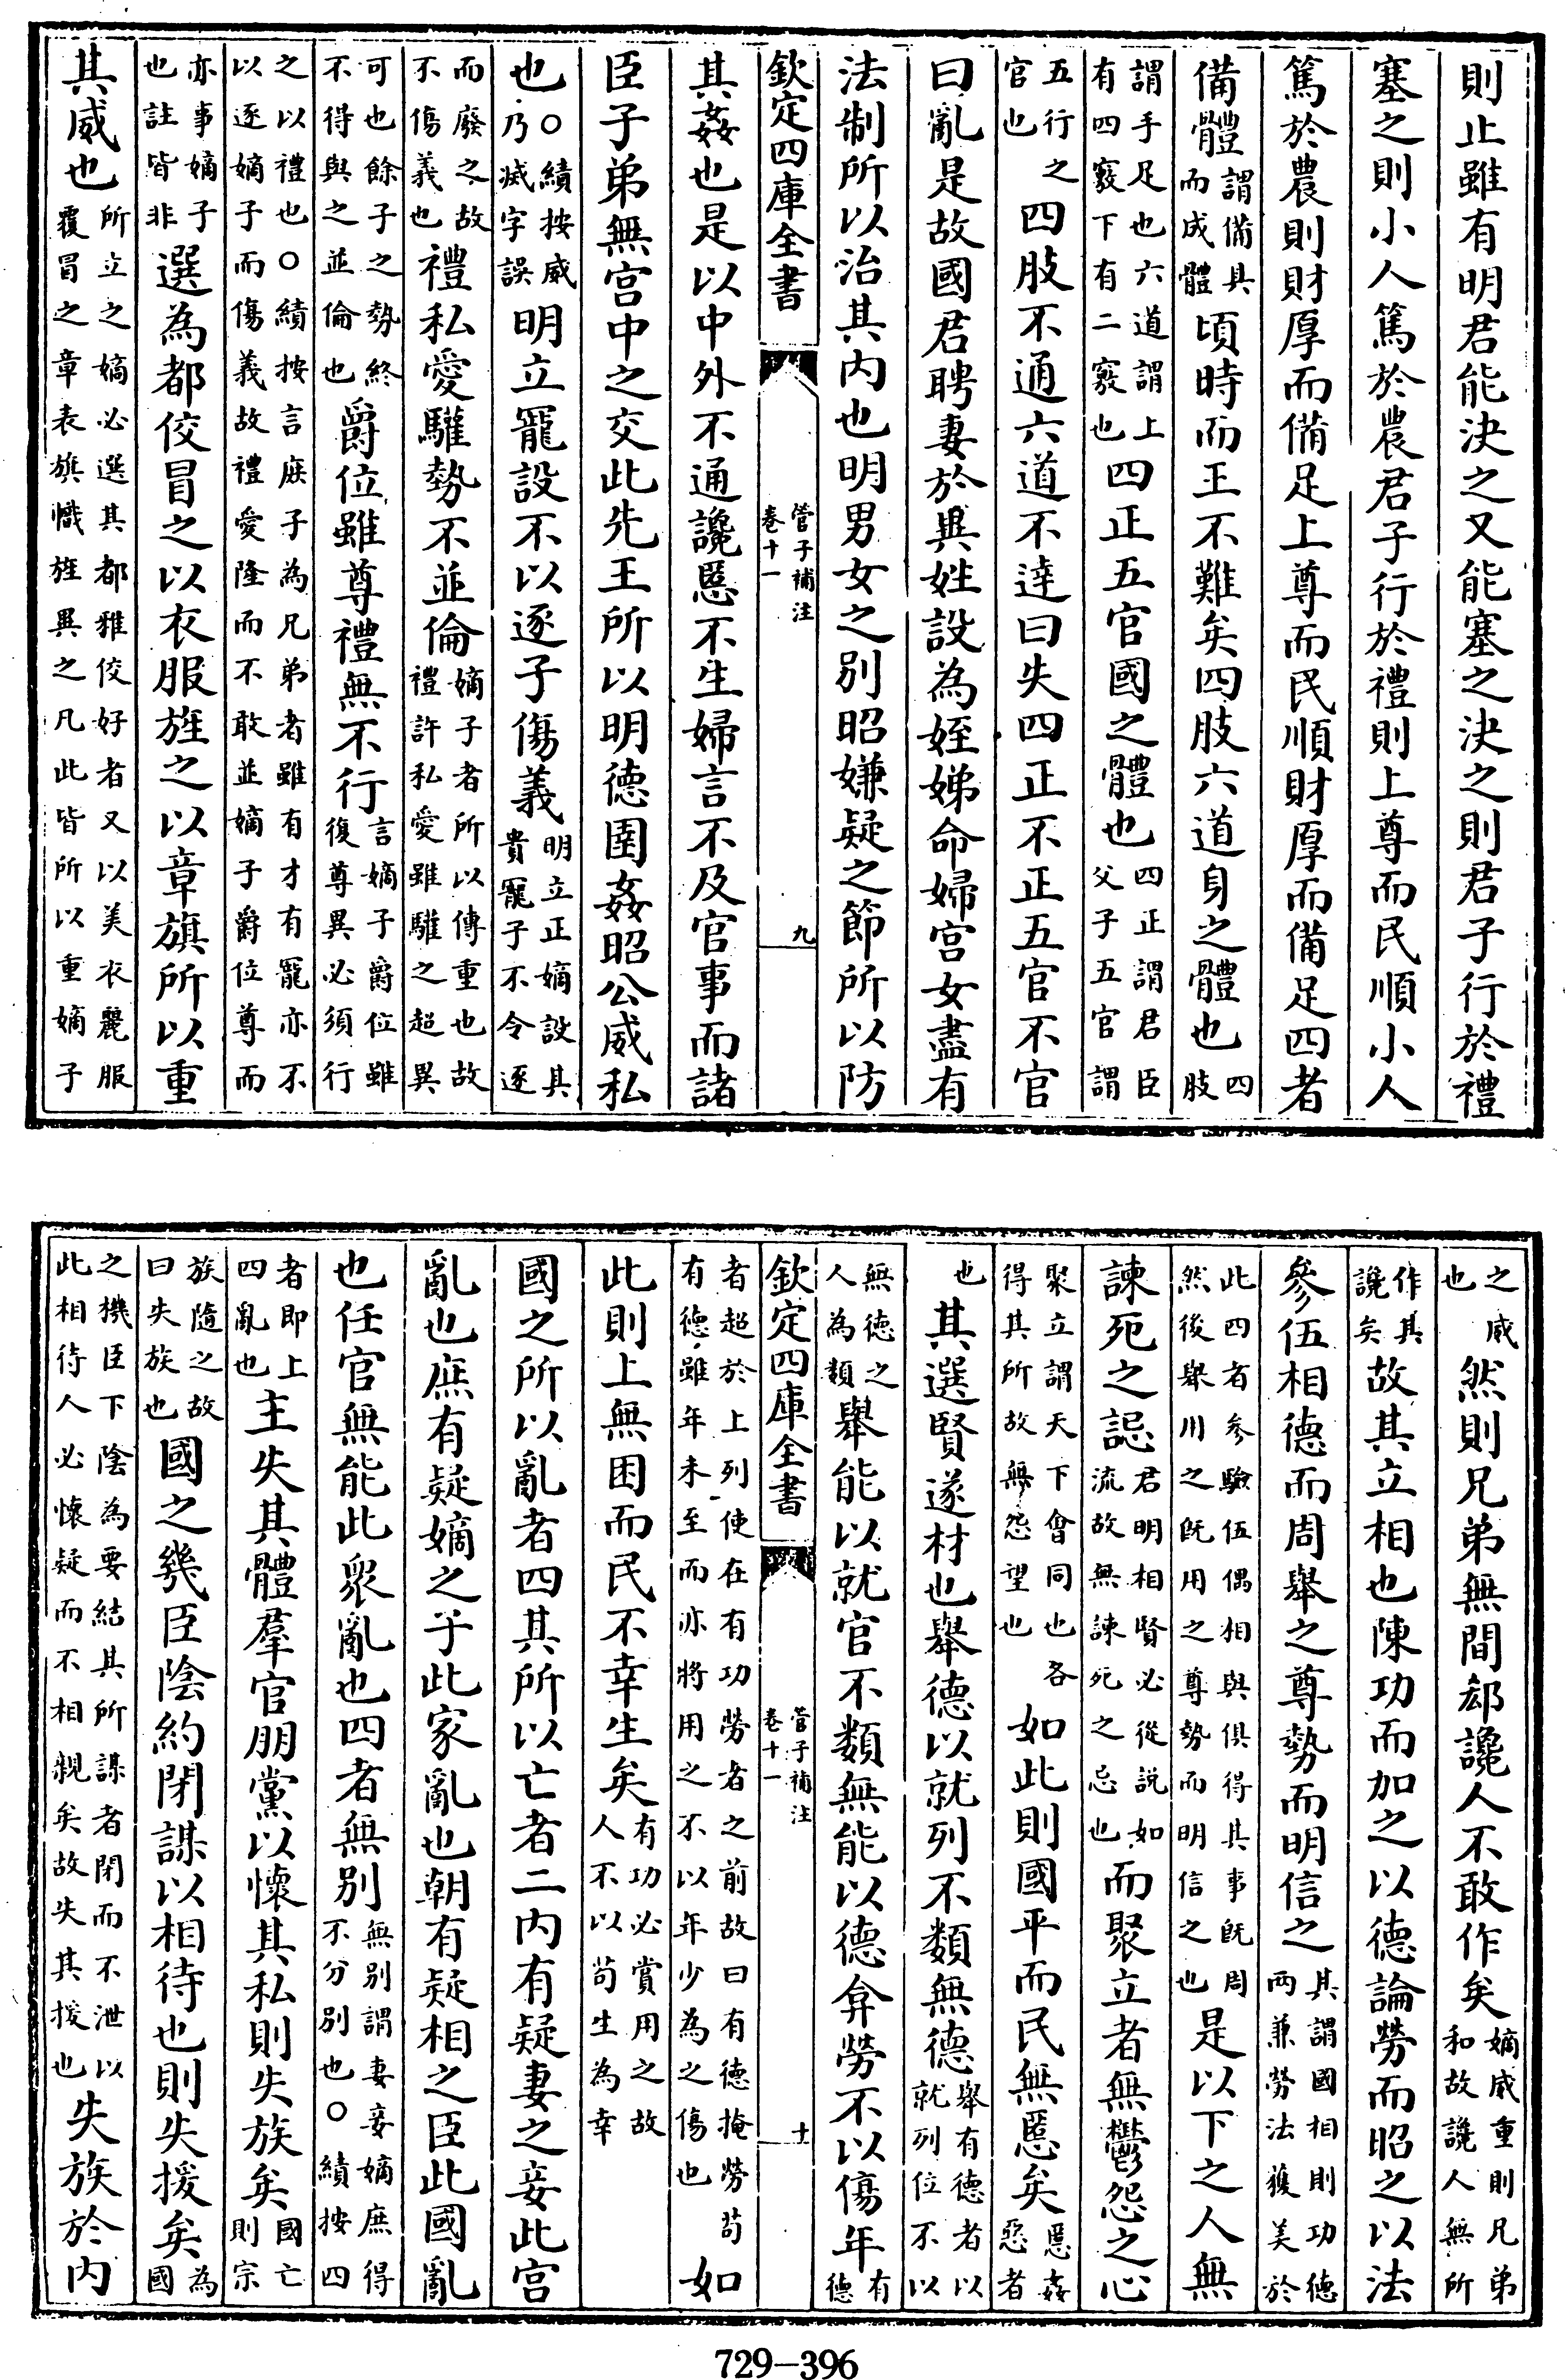 則止雖有明君能決之又能塞之決之則君子行於禮
塞之則小人篤於農君子行於禮則上尊而民順小人
篤於農則財厚而備足上尊而民順財厚而備足四者
備體謂備具而成體頃時而王不難矣四肢六道身之體也四肢
謂手足也六道謂上有四竅下有二竅也四正五官國之體也四正謂君臣父子五官謂
五行之官也四肢不通六道不達曰失四正不正五官不官
曰亂是故國君聘妻於異姓設為姪娣命婦宫女盡有
法制所以治其内也明男女之别昭嫌疑之節所以防
欽定四庫全書 管子補注卷十一 九
其姦也是以中外不通讒慝不生婦言不及官事而諸
臣子弟無宫中之交此先王所以明德圉姦昭公威私
也○績按威乃烕字誤明立寵設不以逐子傷義明立正嫡設其貴寵子不令逐
而廢之故不傷義也禮私愛驩勢不並倫嫡子者所以傳重也故禮許私愛雖驩之超異
可也餘子之勢終不得與之並倫也爵位雖尊禮無不行言嫡子爵位雖復尊異必須行
之以禮也○績按言庶子為兄弟者雖有才有寵亦不以逐嫡子而傷義故禮愛隆而不敢並嫡子爵位尊而
亦事嫡子也註皆非選為都佼冒之以衣服旌之以章旗所以重
其威也所立之嫡必選其都雅佼好者又以美衣麗服覆冒之章表旗幟旌異之凡此皆所以重嫡子
之威也然則兄弟無間郄讒人不敢作矣嫡威重則兄弟和故讒人無所
作其讒矣故其立相也陳功而加之以德論勞而昭之以法
參伍相德而周舉之尊勢而明信之其謂國相則功德兩兼勞法獲美於
此四者參驗伍偶相與俱得其事旣周然後舉用之旣用之尊勢而明信之也是以下之人無
諫死之誋君明相賢必從説如流故無諫死之忌也而聚立者無鬱怨之心
聚立謂天下會同也各得其所故無怨望也如此則國平而民無慝矣慝姦惡者
也其選賢遂材也舉德以就列不類無德舉有德者以就列位不以
無德之人為類舉能以就官不類無能以德弇勞不以傷年有德
欽定四庫全書 管子補注卷十一 十
者超於上列使在有功勞者之前故曰有德掩勞苟有德雖年未至而亦將用之不以年少為之傷也如
此則上無困而民不幸生矣有功必賞用之故人不以苟生為幸
國之所以亂者四其所以亡者二内有疑妻之妾此宫
亂也庶有疑嫡之子此家亂也朝有疑相之臣此國亂
也任官無能此衆亂也四者無别無别謂妻妾嫡庶得不分别也○績按四
者即上四亂也主失其體羣官朋黨以懷其私則失族矣國亡則宗
族隨之故曰失族也國之幾臣陰約閉謀以相待也則失援矣為國
之機臣下陰為要結其所謀者閉而不泄以此相待人必懷疑而不相親矣故失其援也失族於内
729-396